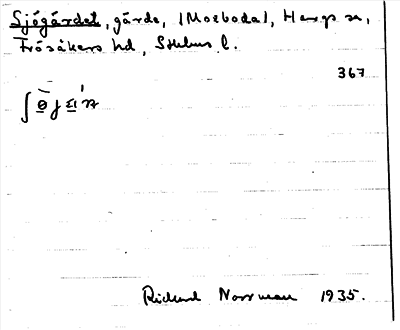 Sjögärdet, gärde, (Moreboda), Hargs sn,
Frösåkers hd, Sthlms l.
367
Richard Norrman 1935.